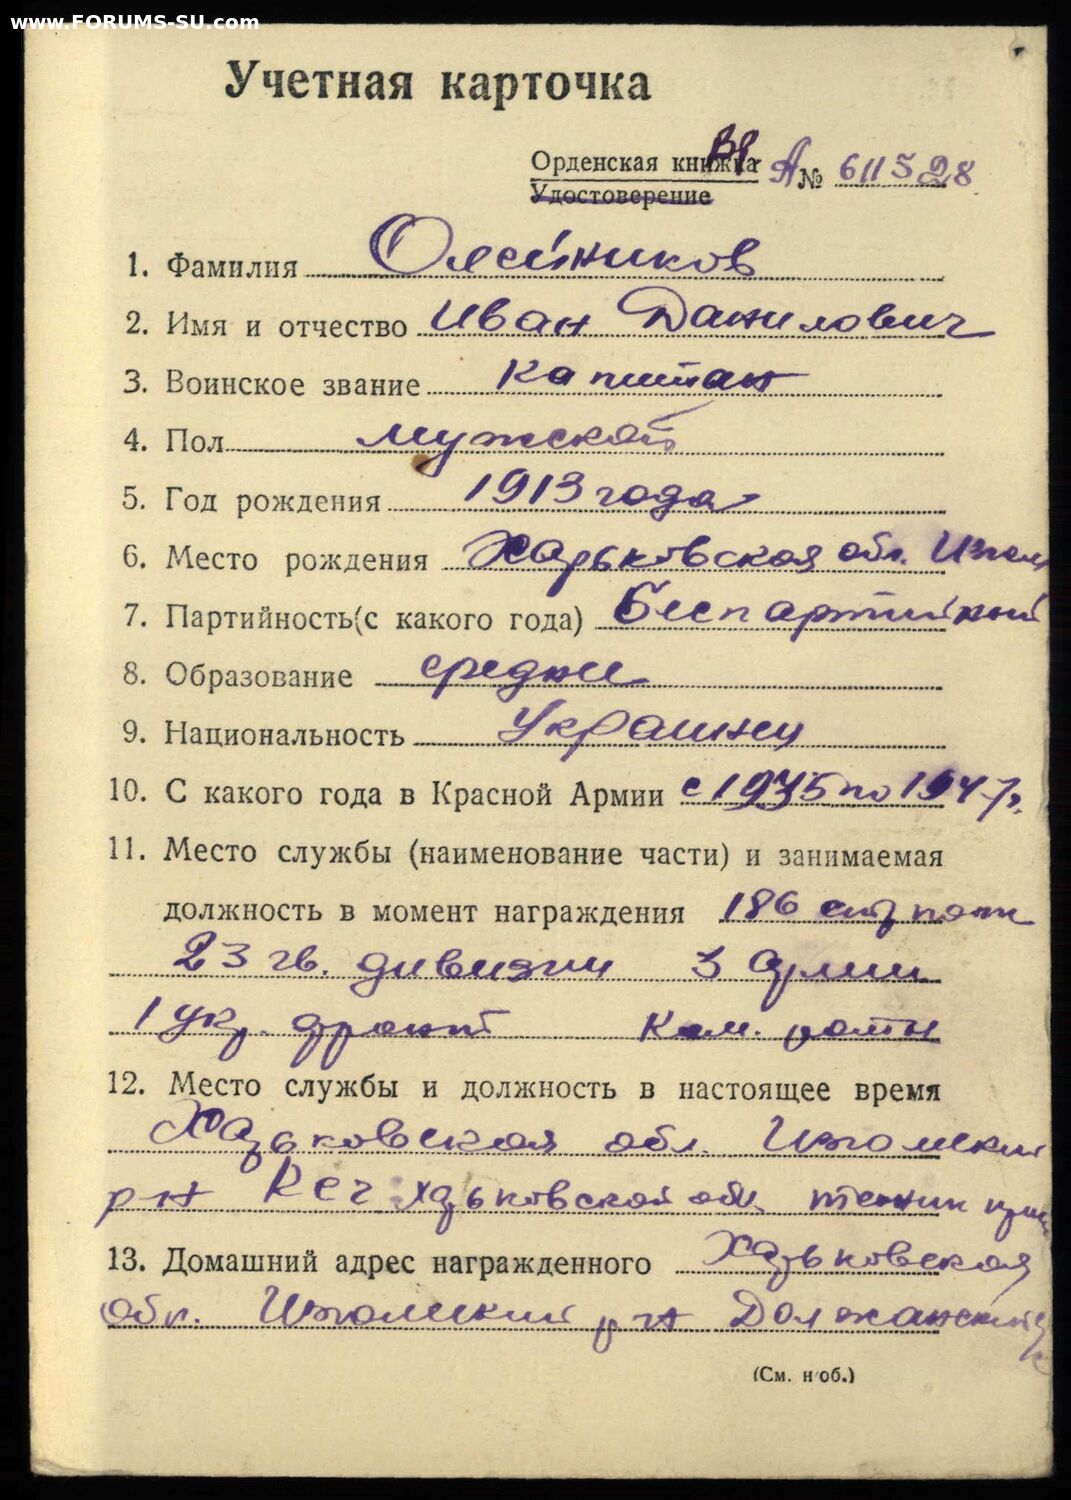 www.FORUMS-SU.com
Учетная карточка
Орденская книжка А № 611528
Удостоверение
1. Фамилия Олейников
2. Имя и отчество Иван Данилович
3. Воинское звание капитан
4. Пол мужской
5. Год рождения 1913 года
6. Место рождения Харьковская обл. Изюм
7. Партийность(с какого года) Беспартийный
8. Образование средне
9. Национальность Украинец
10. С какого года в Красной Армии с 1935 по 1947г.
11. Место службы (наименование части) и занимаемая
должность в момент награждения 186 полк
23 гв. дивизии 3 Армии
1 укр. фронт Ком. роты
12. Место службы и должность в настоящее время
Харьковская обл. Изюмский
р-н Харьковской обл.
13. Домашний адрес награжденного Харьковская
обл. Изюмский р-н Должанский
(См. н/об.)